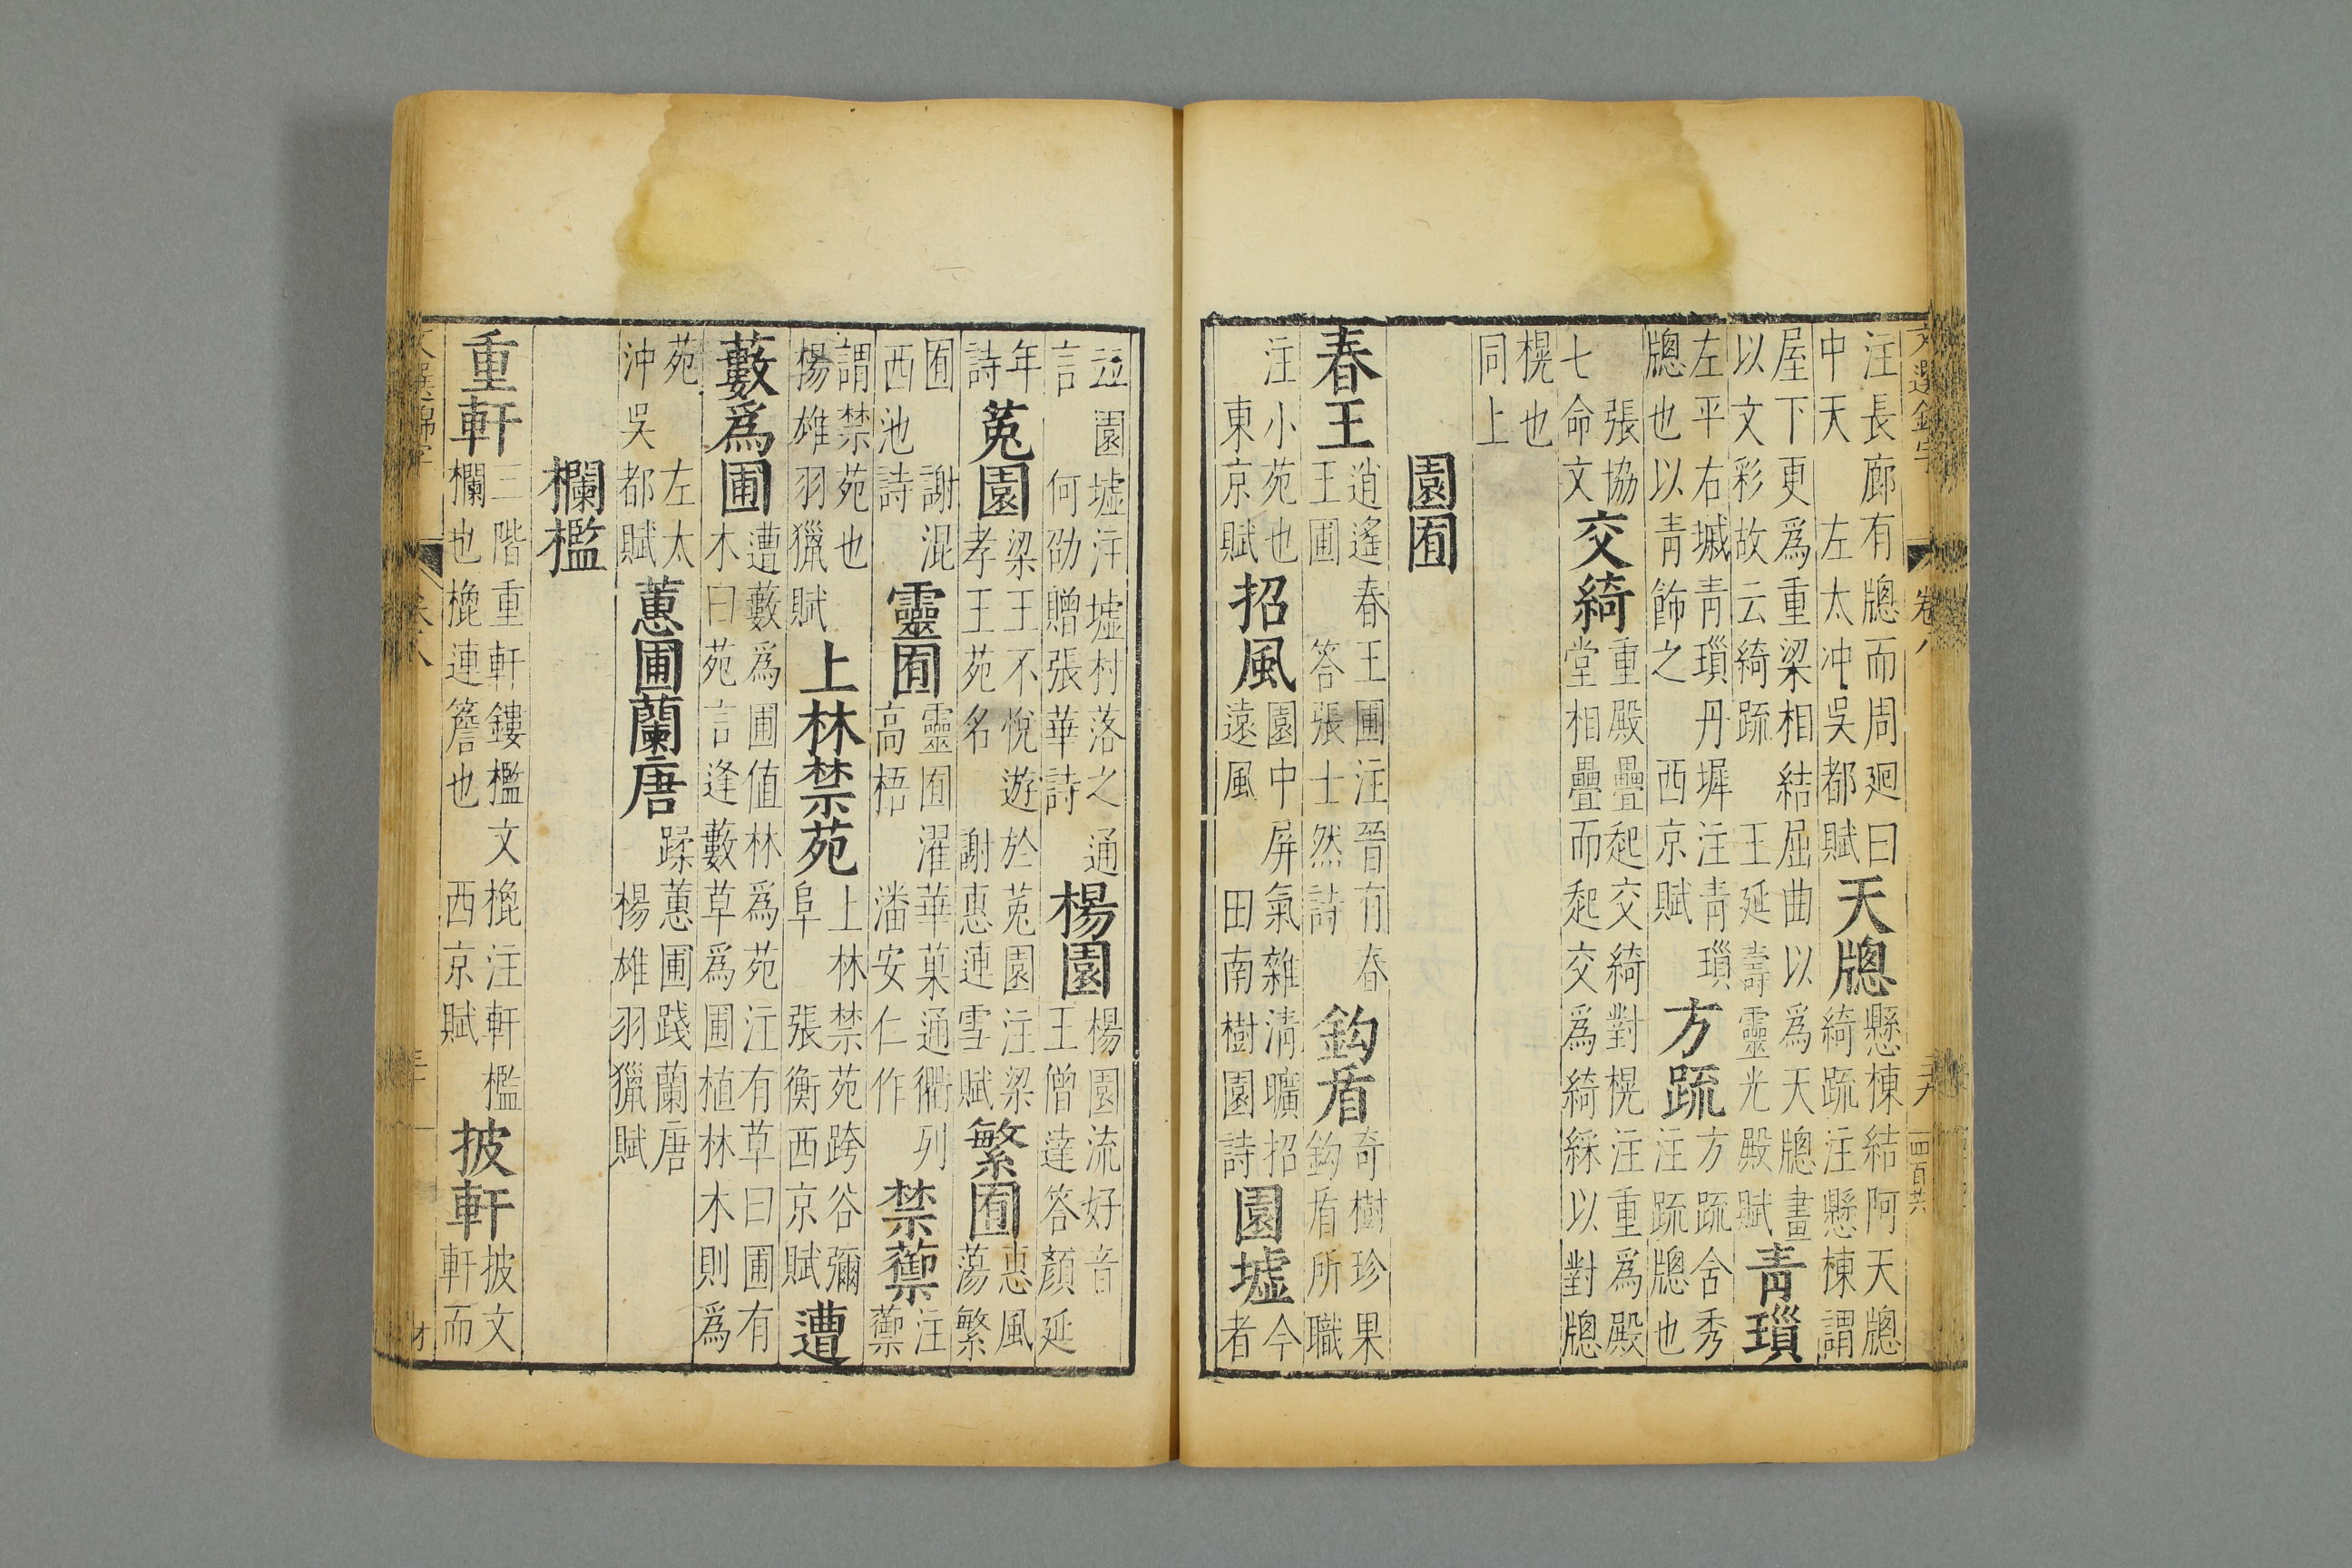 文選錦字 卷八
注長廊有牎而周廻曰中天 左太冲吳都賦 天牎 懸棟結阿天牎綺疏注懸棟謂
屋下更爲重梁相結屈曲以爲天牎畫以文彩故云綺疏 王延壽靈光殿賦 青瑣
左平右墄青瑣丹墀注青瑣牎也以青飾之 西京賦 方疏 方疏含秀注疏牎也
張協七命文 交綺 重殿疊起交綺對榥注重爲殿堂相疊而起交爲綺綵以對牎
榥也 同上
園囿
春王 逍遙春王圃注晉有春王圃 答張士然詩 鈎盾 奇樹珍果鈎盾所職
注小苑也 東京賦 招風 園中屏氣雜清曠招遠風 田南樹園詩 園墟 今者
並園墟注墟村落之通言 何劭贈張華詩 楊園 楊園流好音 王僧達答顏延
年詩 菟園 梁王不悅遊於菟園注梁孝王苑名 謝惠連雪賦 繁囿 惠風蕩繁
囿 謝混西池詩 靈囿 靈囿濯華菓通衢列高梧 潘安仁作 禁蘌 注蘌
謂禁苑也 楊雄羽獵賦 上林禁苑 上林禁苑跨谷彌阜 張衡西京賦 遭
藪爲圃 遭藪爲圃值林爲苑注有草曰圃有木曰苑言逢藪草爲圃植林木則爲
苑 左太沖吳都賦 蕙圃蘭唐 蹂蕙圃踐蘭唐 楊雄羽獵賦
欄檻
重軒 三階重軒鏤檻文㮰注軒檻欄也㮰連簷也 西京賦 披軒 披文軒而